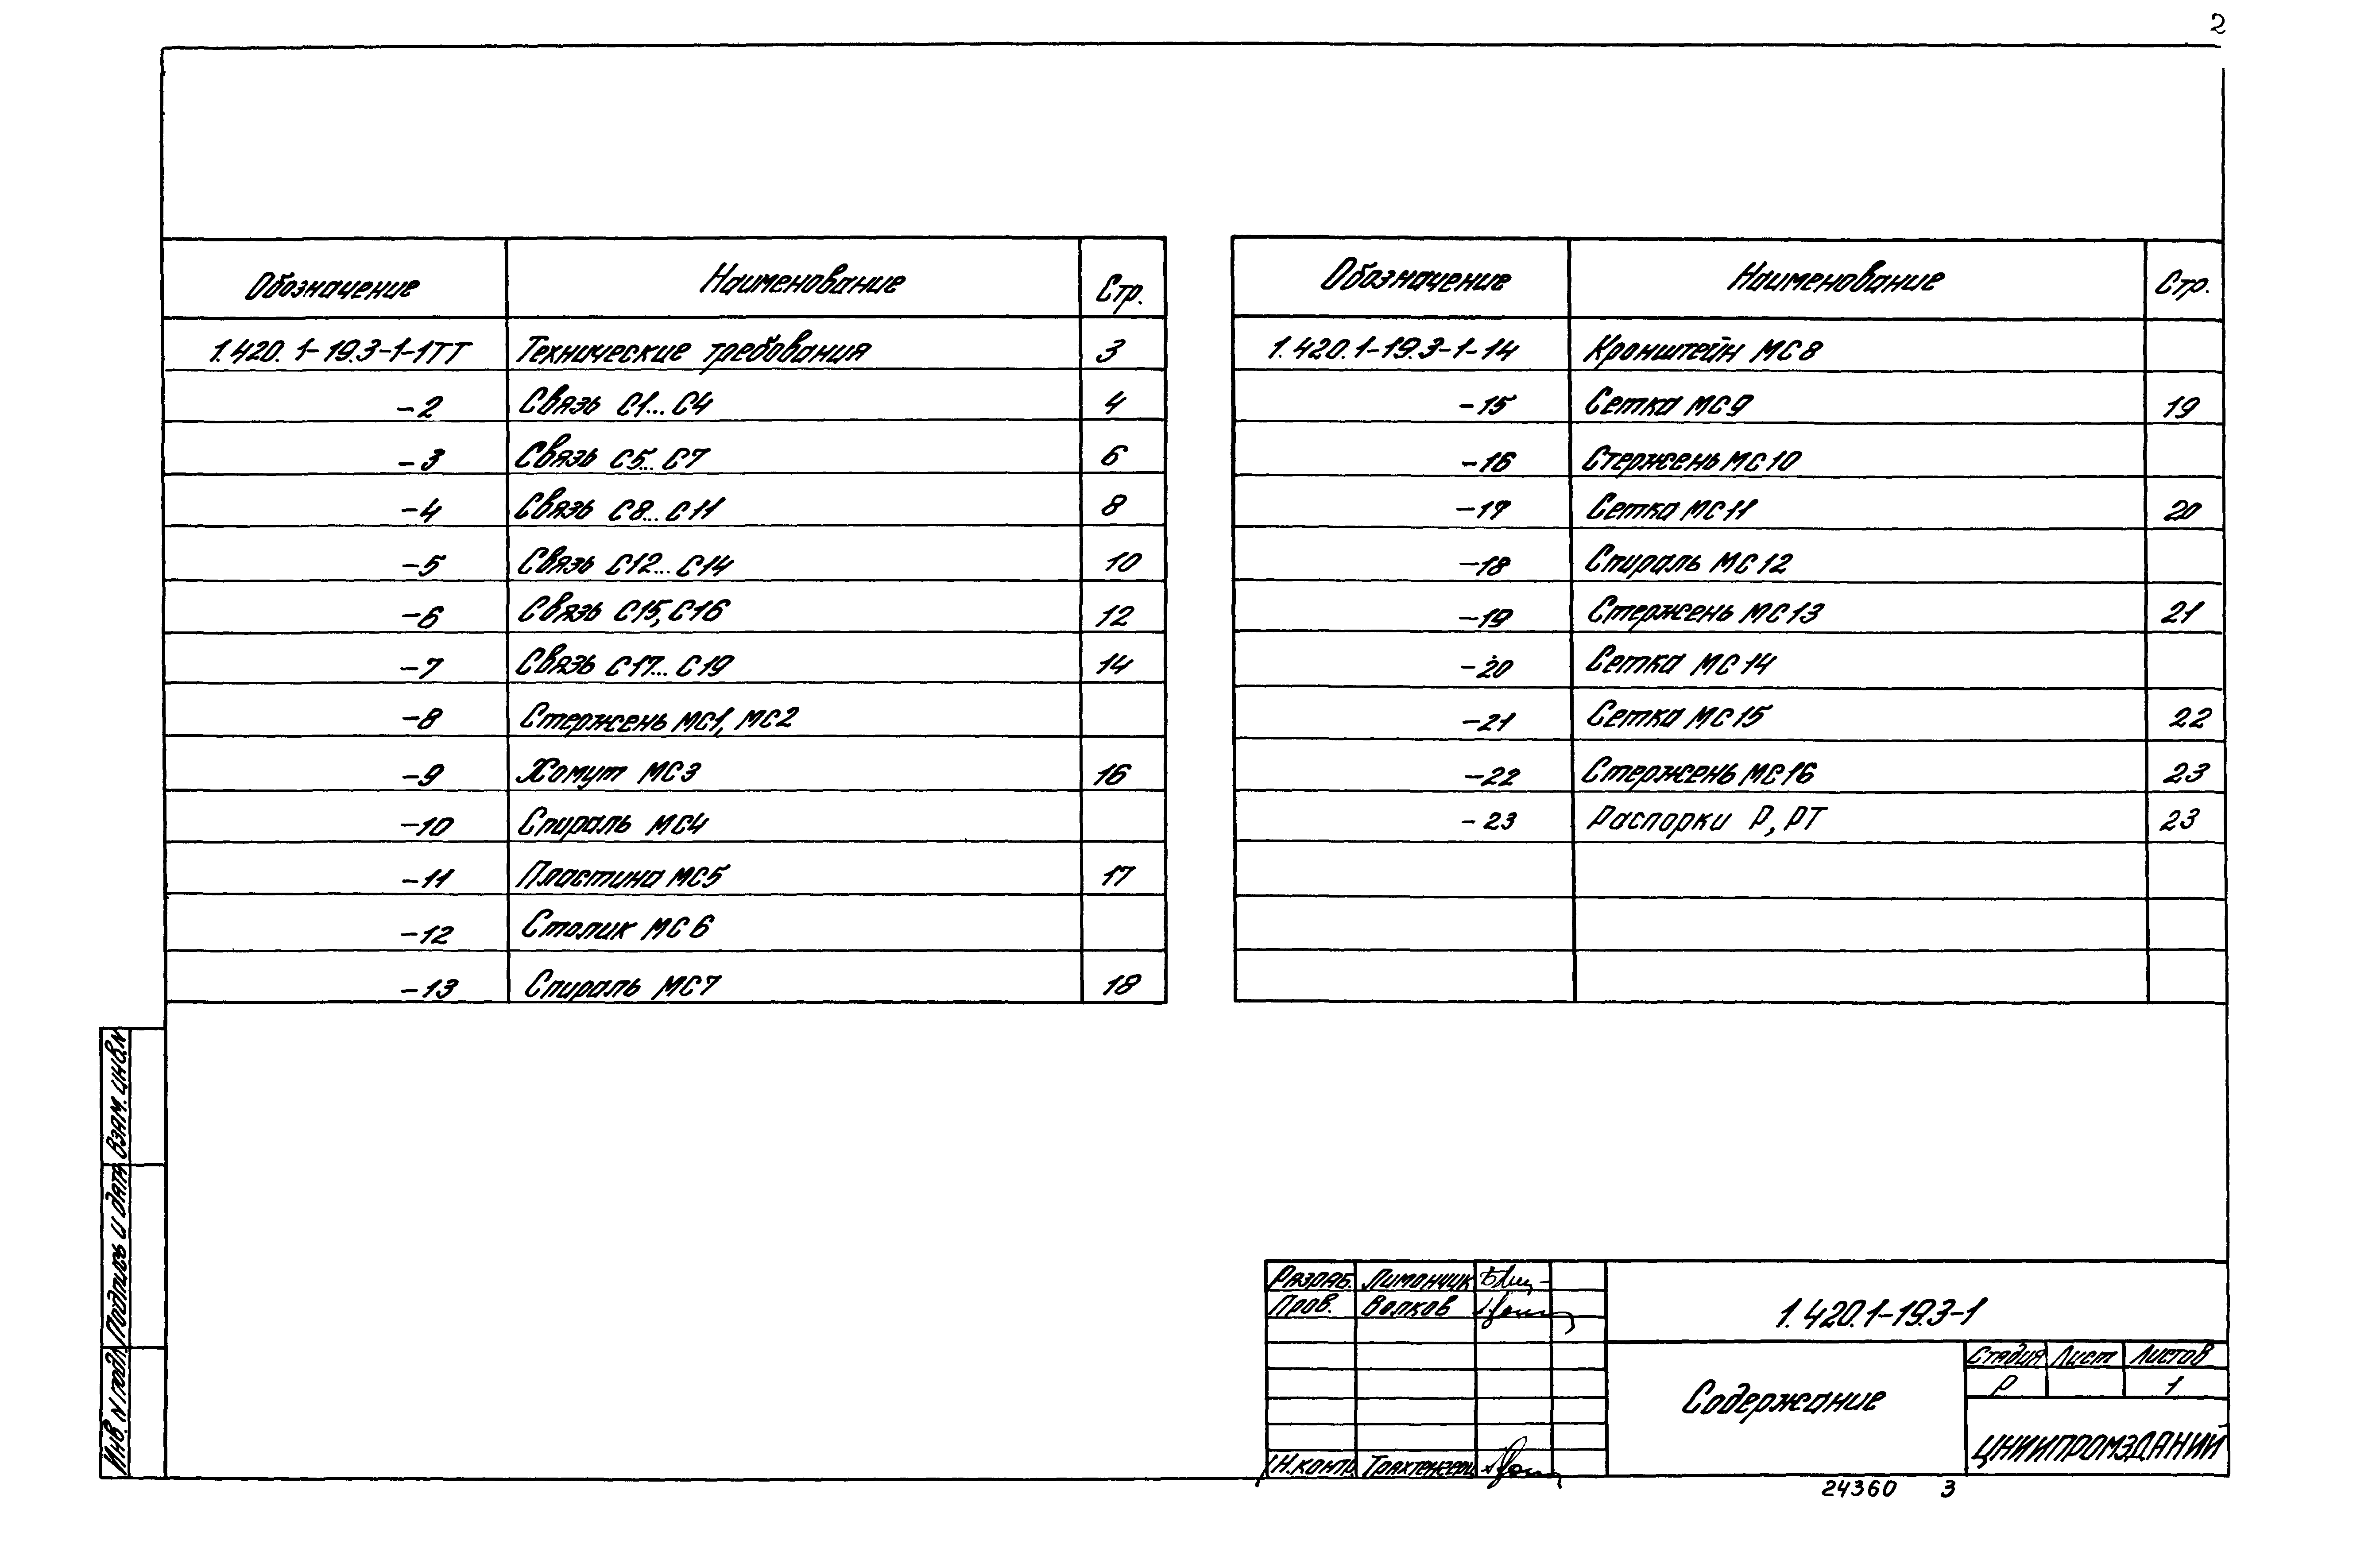 2
Обозначение Наименование Стр.
1.420.1-19.3-1-1ТТ Технические требования 3
-2 Связь С1...С4 4
-3 Связь С5...С7 6
-4 Связь С8...С11 8
-5 Связь С12...С14 10
-6 Связь С15, С16 12
-7 Связь С17...С19 14
-8 Стержень МС1, МС2
-9 Хомут МС3 16
-10 Спираль МС4
-11 Пластина МС5 17
-12 Столик МС6
-13 Спираль МС7 18
Обозначение Наименование Стр.
1.420.1-19.3-1-14 Кронштейн МС8
-15 Сетка МС9 19
-16 Стержень МС10
-17 Сетка МС11 20
-18 Спираль МС12
-19 Стержень МС13 21
-20 Сетка МС14
-21 Сетка МС15 22
-22 Стержень МС16 23
-23 Распорки Р, РТ 23
Взам. инв. N
Подпись и дата
Инв. N подл.
Разраб. Лимончик
Пров. Волков
Н.контр. Трахтенгерц
1.420.1-19.3-1
Содержание
Стадия Лист Листов
Р 1
ЦНИИПРОМЗДАНИЙ
24360 3